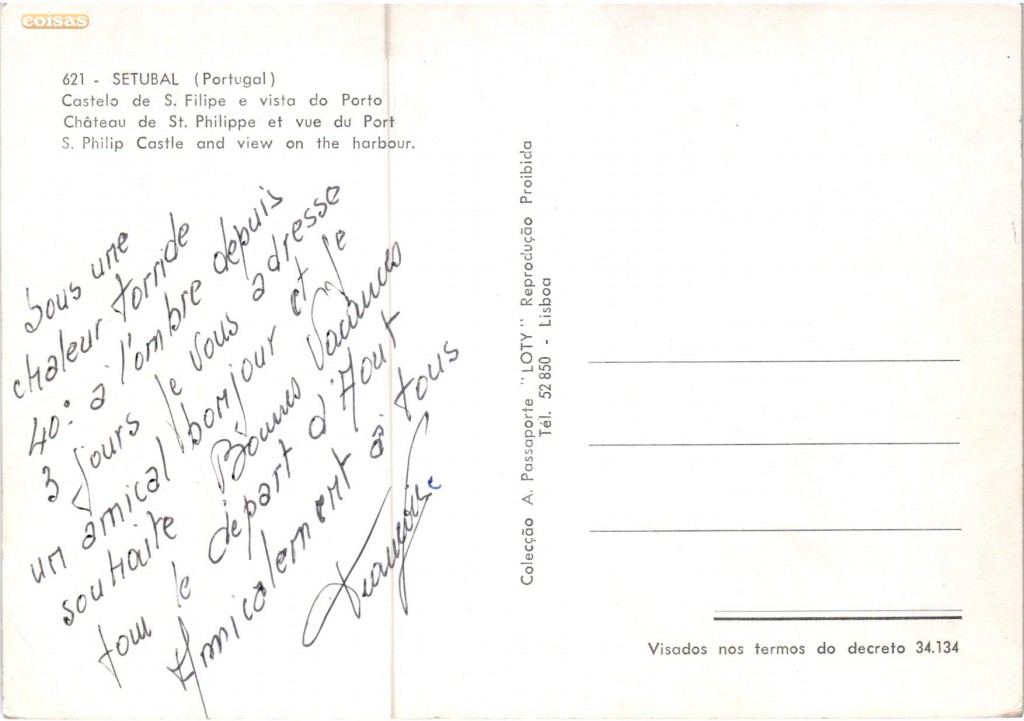 coisas
621 - SETUBAL (Portugal)
Castelo de S. Filipe e vista do Porto
Château de St. Philippe et vue du Port
S. Philip Castle and view on the harbour.
Sous une
chaleur torride
40° à l'ombre depuis
3 jours je vous adresse
un amical bonjour et je
souhaite Bonnes Vacances
pour le départ d'Aout
Amicalement à tous
Françoise
Colecção A. Passaporte "LOTY" Reprodução Proibida
Tél. 52 850 - Lisboa
Visados nos termos do decreto 34.134